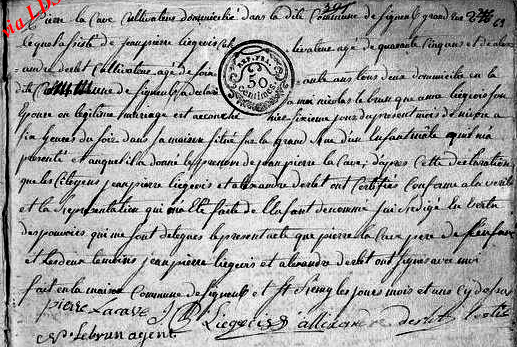 pierre la Cave Cultivateur domicilié dans la dite Commune de Signeulx grand rue
lequel assisté de jean pierre liegeois cultivateur agé de quarante cinq ans et de alex
andre derlet Cultivateur agé de soixante ans tous deux domiciliés en la
dite Commune de Signeulx a déclaré a moi nicolas le brun que anne liegeois son
Epouse en legitime mariage est accouchée hier sixieme jour du present mois de
six heures du soir dans sa maison située sur la grand Rue d'un Enfant mâle qui m'a
présenté et auquel il a donné le prenom de jean pierre la Cave, d'après cette declaration
que les Citoyens jean pierre liegeois et alexandre derlet ont Certifiés Conforme a la verité
et la Representation qui m'a été faite de l'Enfant denommé jai redigé En vertu
des pouvoirs qui me sont delegués le present acte que pierre la Cave pere de l'enfant
et les deux temoins jean pierre liegeois et alexandre derlet ont signés avec moi
fait en la maison Commune de Signeulx et St Remy les jours mois et ans cy dessus
pierre lacave J P Liegeois allexandre derlet
N Lebrun agent
REP. FRA.
50
Centimes
via LDS